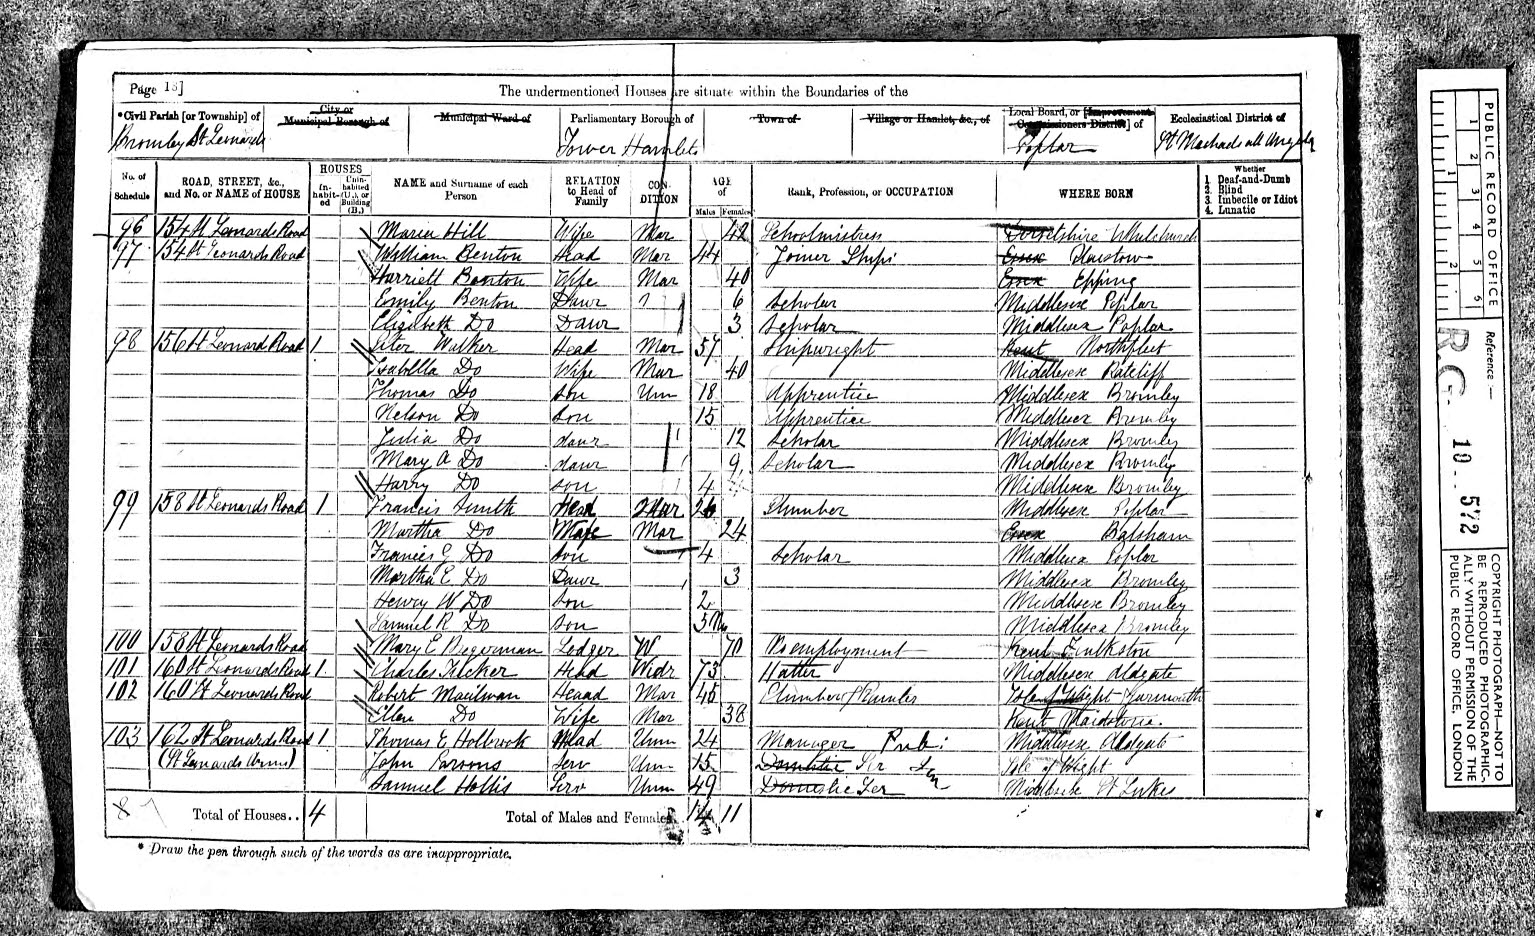 Page 13]
The undermentioned Houses are situate within the Boundaries of the
*Civil Parish [or Township] of
City or Municipal Borough of
Municipal Ward of
Parliamentary Borough of
Town of
Village or Hamlet, &c., of
Local Board, or [Improvement Commissioners District] of
Ecclesiastical District of
Bromley St Leonards
Tower Hamlets
Poplar
St Michaels all Angels
No. of Schedule
ROAD, STREET, &c., and No. or NAME of HOUSE
HOUSES
In-habit-ed
Unin-habited (U.), or Building (B.)
NAME and Surname of each Person
RELATION to Head of Family
CON-DITION
AGE of
Males
Females
Rank, Profession, or OCCUPATION
WHERE BORN
Whether
1. Deaf-and-Dumb
2. Blind
3. Imbecile or Idiot
4. Lunatic
96 154 St Leonards Road Maria Hill Wife Mar 42 Schoolmistress Dorsetshire Whitchurch
97 154 St Leonards Road William Benton Head Mar 44 Joiner Ships Essex Plaistow
Harriett Benton Wife Mar 40 Essex Epping
Emily Benton Daur 6 Scholar Middlesex Poplar
Elizabeth Do Daur 3 Scholar Middlesex Poplar
98 156 St Leonard Road 1 Peter Walker Head Mar 57 Shipwright Kent Northfleet
Isabella Do Wife Mar 40 Middlesex Ratcliff
Thomas Do Son Unm 18 Apprentice Middlesex Bromley
Nelson Do Son 15 Apprentice Middlesex Bromley
Julia Do daur 12 Scholar Middlesex Bromley
Mary A Do daur 9 Scholar Middlesex Bromley
Harry Do son 4 Middlesex Bromley
99 158 St Leonards Road 1 Francis Smith Head Mar 26 Plumber Middlesex Poplar
Martha Do Wife Mar 24 Essex Balsham
Francis G Do Son 4 Scholar Middlesex Poplar
Martha E Do Daur 3 Middlesex Bromley
Henry W Do Son 2 Middlesex Bromley
Samuel R Do Son 5 Mo Middlesex Bromley
100 158 St Leonards Road Mary E Lodger W 70 No employment Kent
101 160 St Leonards Road 1 Charles Head Widr 73 Hatter Middlesex Aldgate
102 160 St Leonards Road Robert Macilwan Head Mar 45 Plumber Isle of Wight Yarmouth
Ellen Do Wife Mar 38 Kent Maidstone
103 162 St Leonards Road 1 Thomas E Holbrook Head Unm 24 Manager Pub: Middlesex Aldgate
(St Leonards Arms) John Serv Unm 15 Domestic Ser Isle of Wight
Samuel Hollis Serv Unm 49 Domestic Ser Middlesex St Lukes
87
Total of Houses.. 4
Total of Males and Females.. 14 11
* Draw the pen through such of the words as are inappropriate.
PUBLIC RECORD OFFICE
1 2 3 4 5 6
1 2
Reference:-
R.G. 10 572
COPYRIGHT PHOTOGRAPH-NOT TO BE REPRODUCED PHOTOGRAPHIC-ALLY WITHOUT PERMISSION OF THE PUBLIC RECORD OFFICE, LONDON